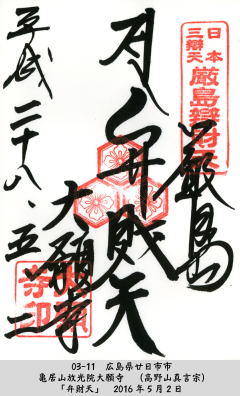 日本
三辯天
厳島辯財天
厳島
弁財天
大願寺
平成二十八、五、二
寺印
03-11 広島県廿日市市
亀居山放光院大願寺 (高野山真言宗)
「弁財天」 2016年5月2日